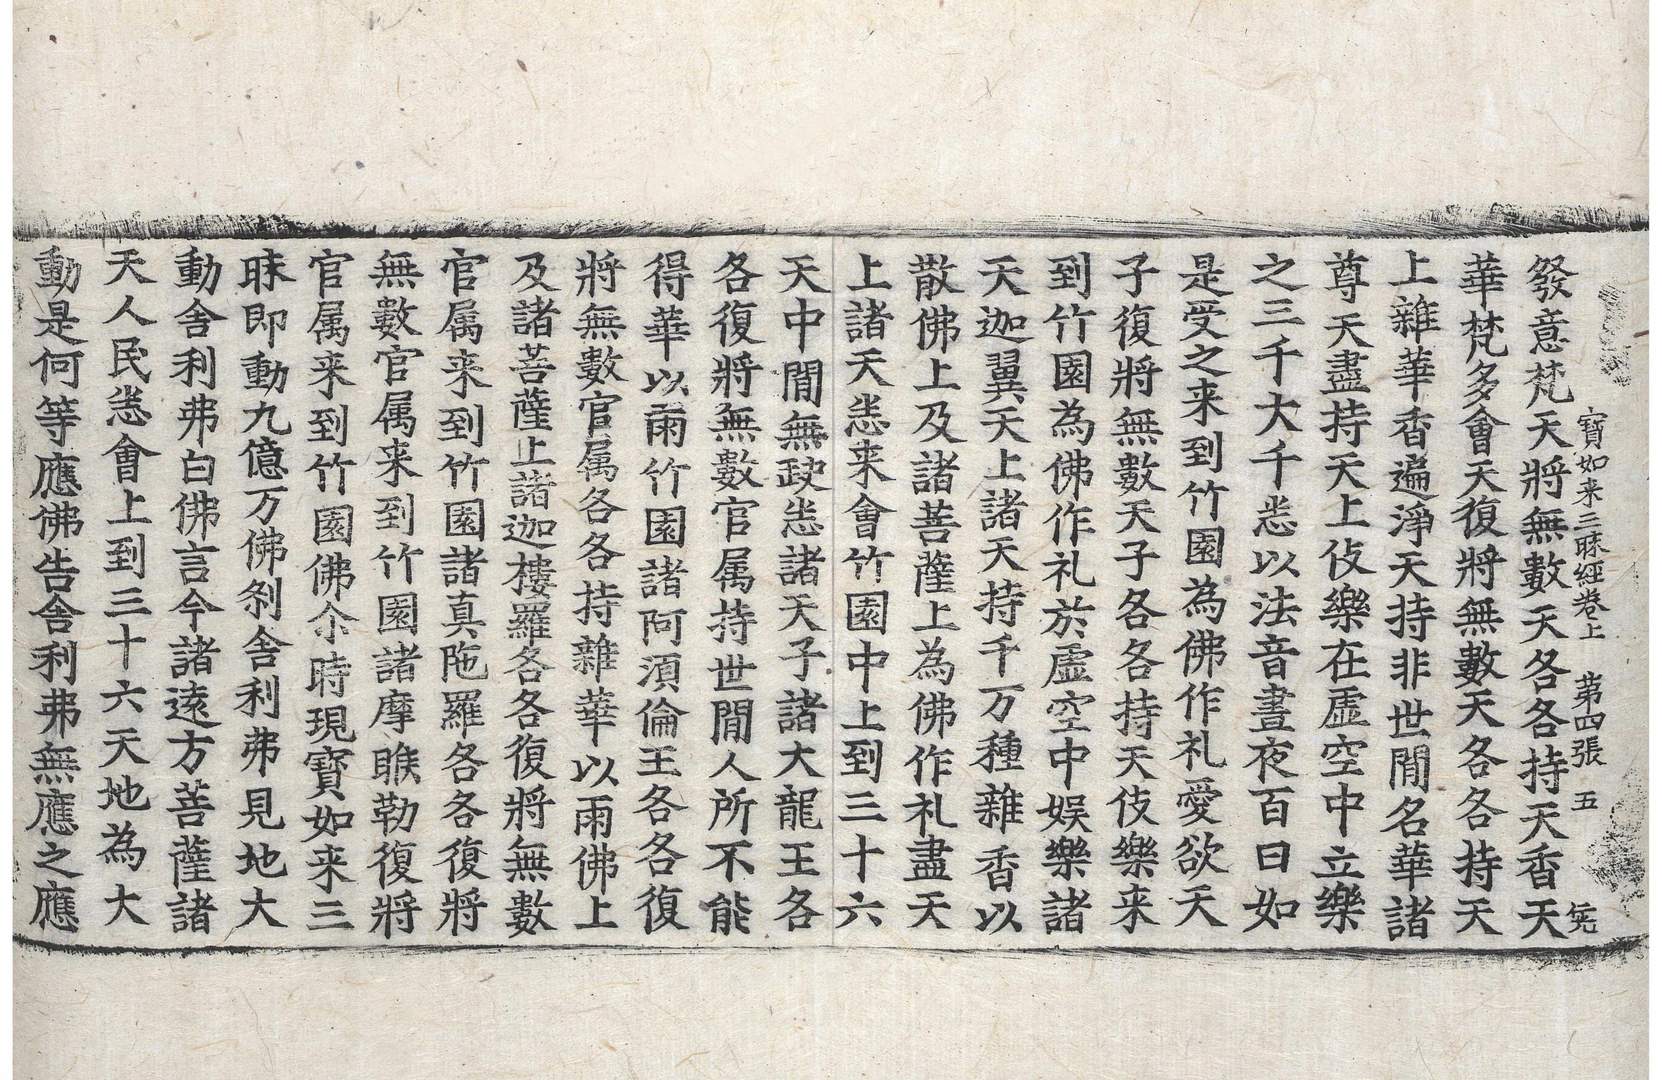 寶如来三昧經卷上　第四張　五
發意梵天將無數天各各持天香天
華梵多會天復將無數天各各持天
上雜華香遍淨天持非世間名華諸
尊天盡持天上伎樂在虛空中立樂
之三千大千悉以法音晝夜百日如
是受之来到竹園為佛作礼愛欲天
子復將無數天子各各持天伎樂来
到竹園為佛作礼於虛空中娛樂諸
天迦翼天上諸天持千万種雜香以
散佛上及諸菩薩上為佛作礼盡天
上諸天悉来會竹園中上到三十六
天中間無𨵿悉諸天子諸大龍王各
各復將無數官属持世間人所不能
得華以雨竹園諸阿須倫王各各復
將無數官属各各持雜華以雨佛上
及諸菩薩上諸迦樓羅各各復將無數
官属来到竹園諸真陁羅各各復將
無數官属来到竹園諸摩睺勒復將
官属来到竹園佛尒時現寶如来三
昧即動九億万佛刹舍利弗見地大
動舍利弗白佛言今諸遠方菩薩諸
天人民悉會上到三十六天地為大
動是何等應佛告舍利弗無應之應